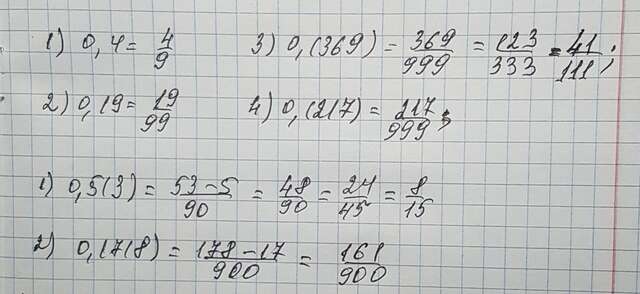 1) 0,4 = 4/9
3) 0,(369) = 369/999 = 123/333 = 41/111;
2) 0,19 = 19/99
4) 0,(217) = 217/999;
1) 0,5(3) = 53-5/90 = 48/90 = 24/45 = 8/15
2) 0,17(8) = 178-17/900 = 161/900